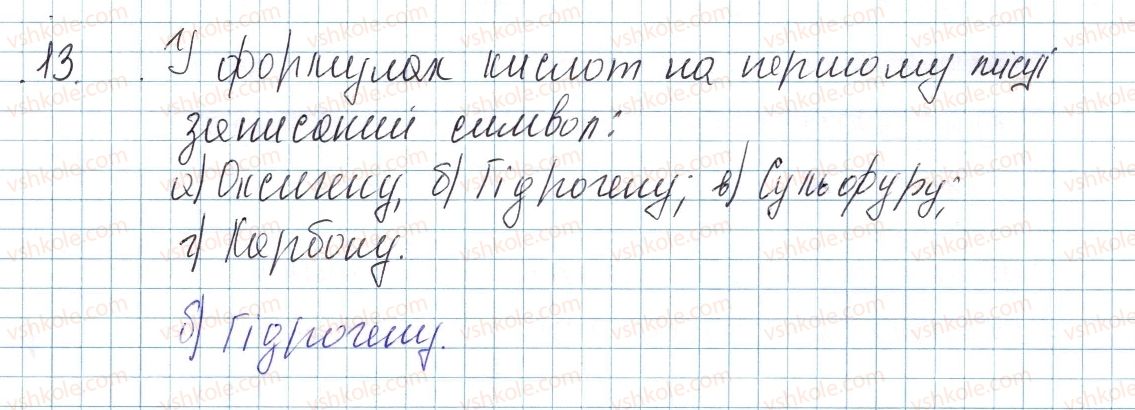 13. У формулах кислот на першому місці
записаний символ:
а) Оксигену, б) Гідрогену; в) Сульфуру;
г) Карбону.
б) Гідрогену.